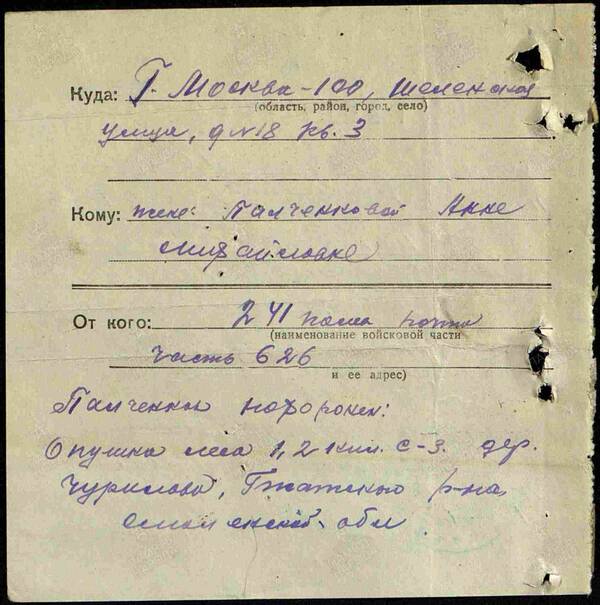 Куда: Г. Москва-100, Шеленская
(область, район, город, село)
улица, д №18 кв. 3
Кому: жене: Палченковой Анне
Михайловне
От кого: 241 полев почта
(наименование войсковой части
часть 626
и ее адрес)
Палченков похоронен:
Опушка леса 1,2 клм. с-з. дер.
Чурилова, Гжатского р-на
Смоленской обл